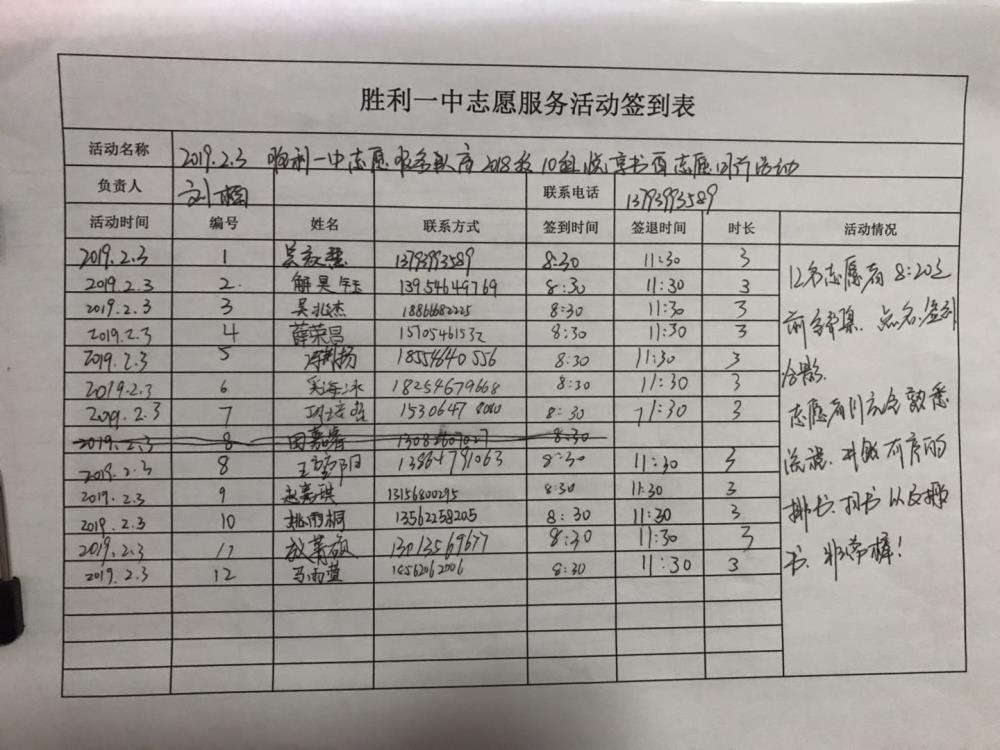 胜利一中志愿服务活动签到表
活动名称 2019.2.3 胜利一中志愿服务队高2018级10组悦享书店志愿活动
负责人 联系电话 13793993589
活动时间 编号 姓名 联系方式 签到时间 签退时间 时长 活动情况
2019.2.3 1 13793993589 8:30 11:30 3
2019.2.3 2. 解昊钰 13954649769 8:30 11:30 3
2019.2.3 3 吴兆杰 18866682225 8:30 11:30 3
2019.2.3 4 薛荣昌 15705461532 8:30 11:30 3
2019.2.3 5 18554640556 8:30 11:30 3
2019.2.3 6 18254679668 8:30 11:30 3
2019.2.3 7 1530647 8:30 11:30 3
2019.2.3 8 田嘉睿 8:30
2019.2.3 8 13864791063 8:30 11:30 3
2019.2.3 9 赵嘉琪 13156800295 8:30 11:30 3
2019.2.3 10 姚雨桐 13562258205 8:30 11:30 3
2019.2.3 11 13013569677 8:30 11:30 3
2019.2.3 12 马雨萱 8:30 11:30 3
12名志愿者8:20之
前到齐集.点名.签到
合影.
志愿者们充分熟悉
流程.井然有序的
排书.扫书以及搬
书.非常棒!